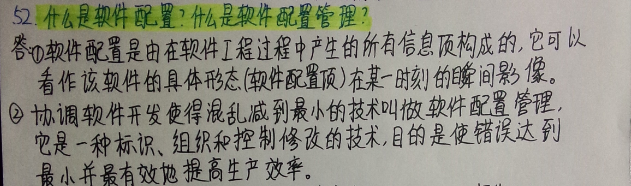 52. 什么是软件配置?什么是软件配置管理?
答:①软件配置是由在软件工程过程中产生的所有信息项构成的,它可以
看作该软件的具体形态(软件配置项)在某一时刻的瞬间影像。
② 协调软件开发使得混乱减到最小的技术叫做软件配置管理,
它是一种标识、组织和控制修改的技术,目的是使错误达到
最小并最有效地提高生产效率。